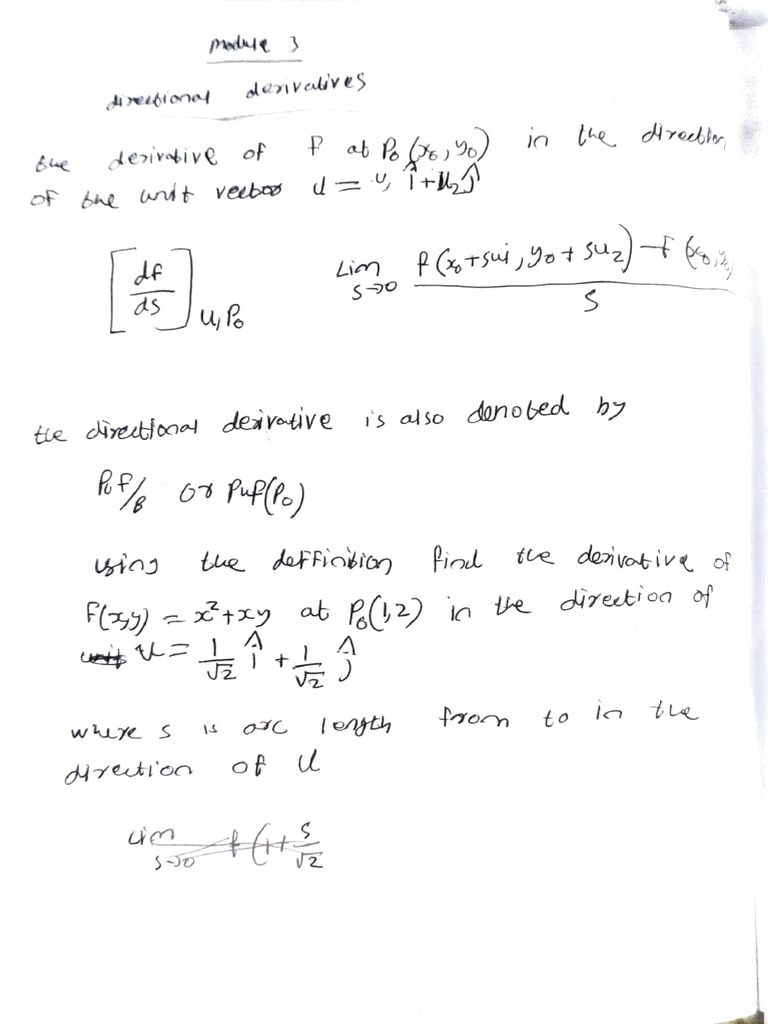 module 3
directional derivatives
the derivative of f at P₀(x₀, y₀) in the direction
of the unit vector u = u₁ î + u₂ ĵ
[df/ds]u, P₀ Lim s→0 f(x₀+sui, y₀+su₂) - f(x₀, y₀) / s
the directional derivative is also denoted by
or Puf(P₀)
using the deffinition find the derivative of
f(x,y) = x²+xy at P₀(1,2) in the direction of
unit u = 1/√2 î + 1/√2 ĵ
where s is arc length from to in the
direction of u
Lim s→0 f(1+ s/√2